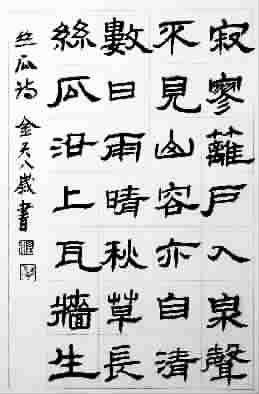 寂寥籬戶入泉聲
不見山容亦自清
數日雨晴秋草長
絲瓜沿上瓦牆生
丝瓜诗 金天八歲書